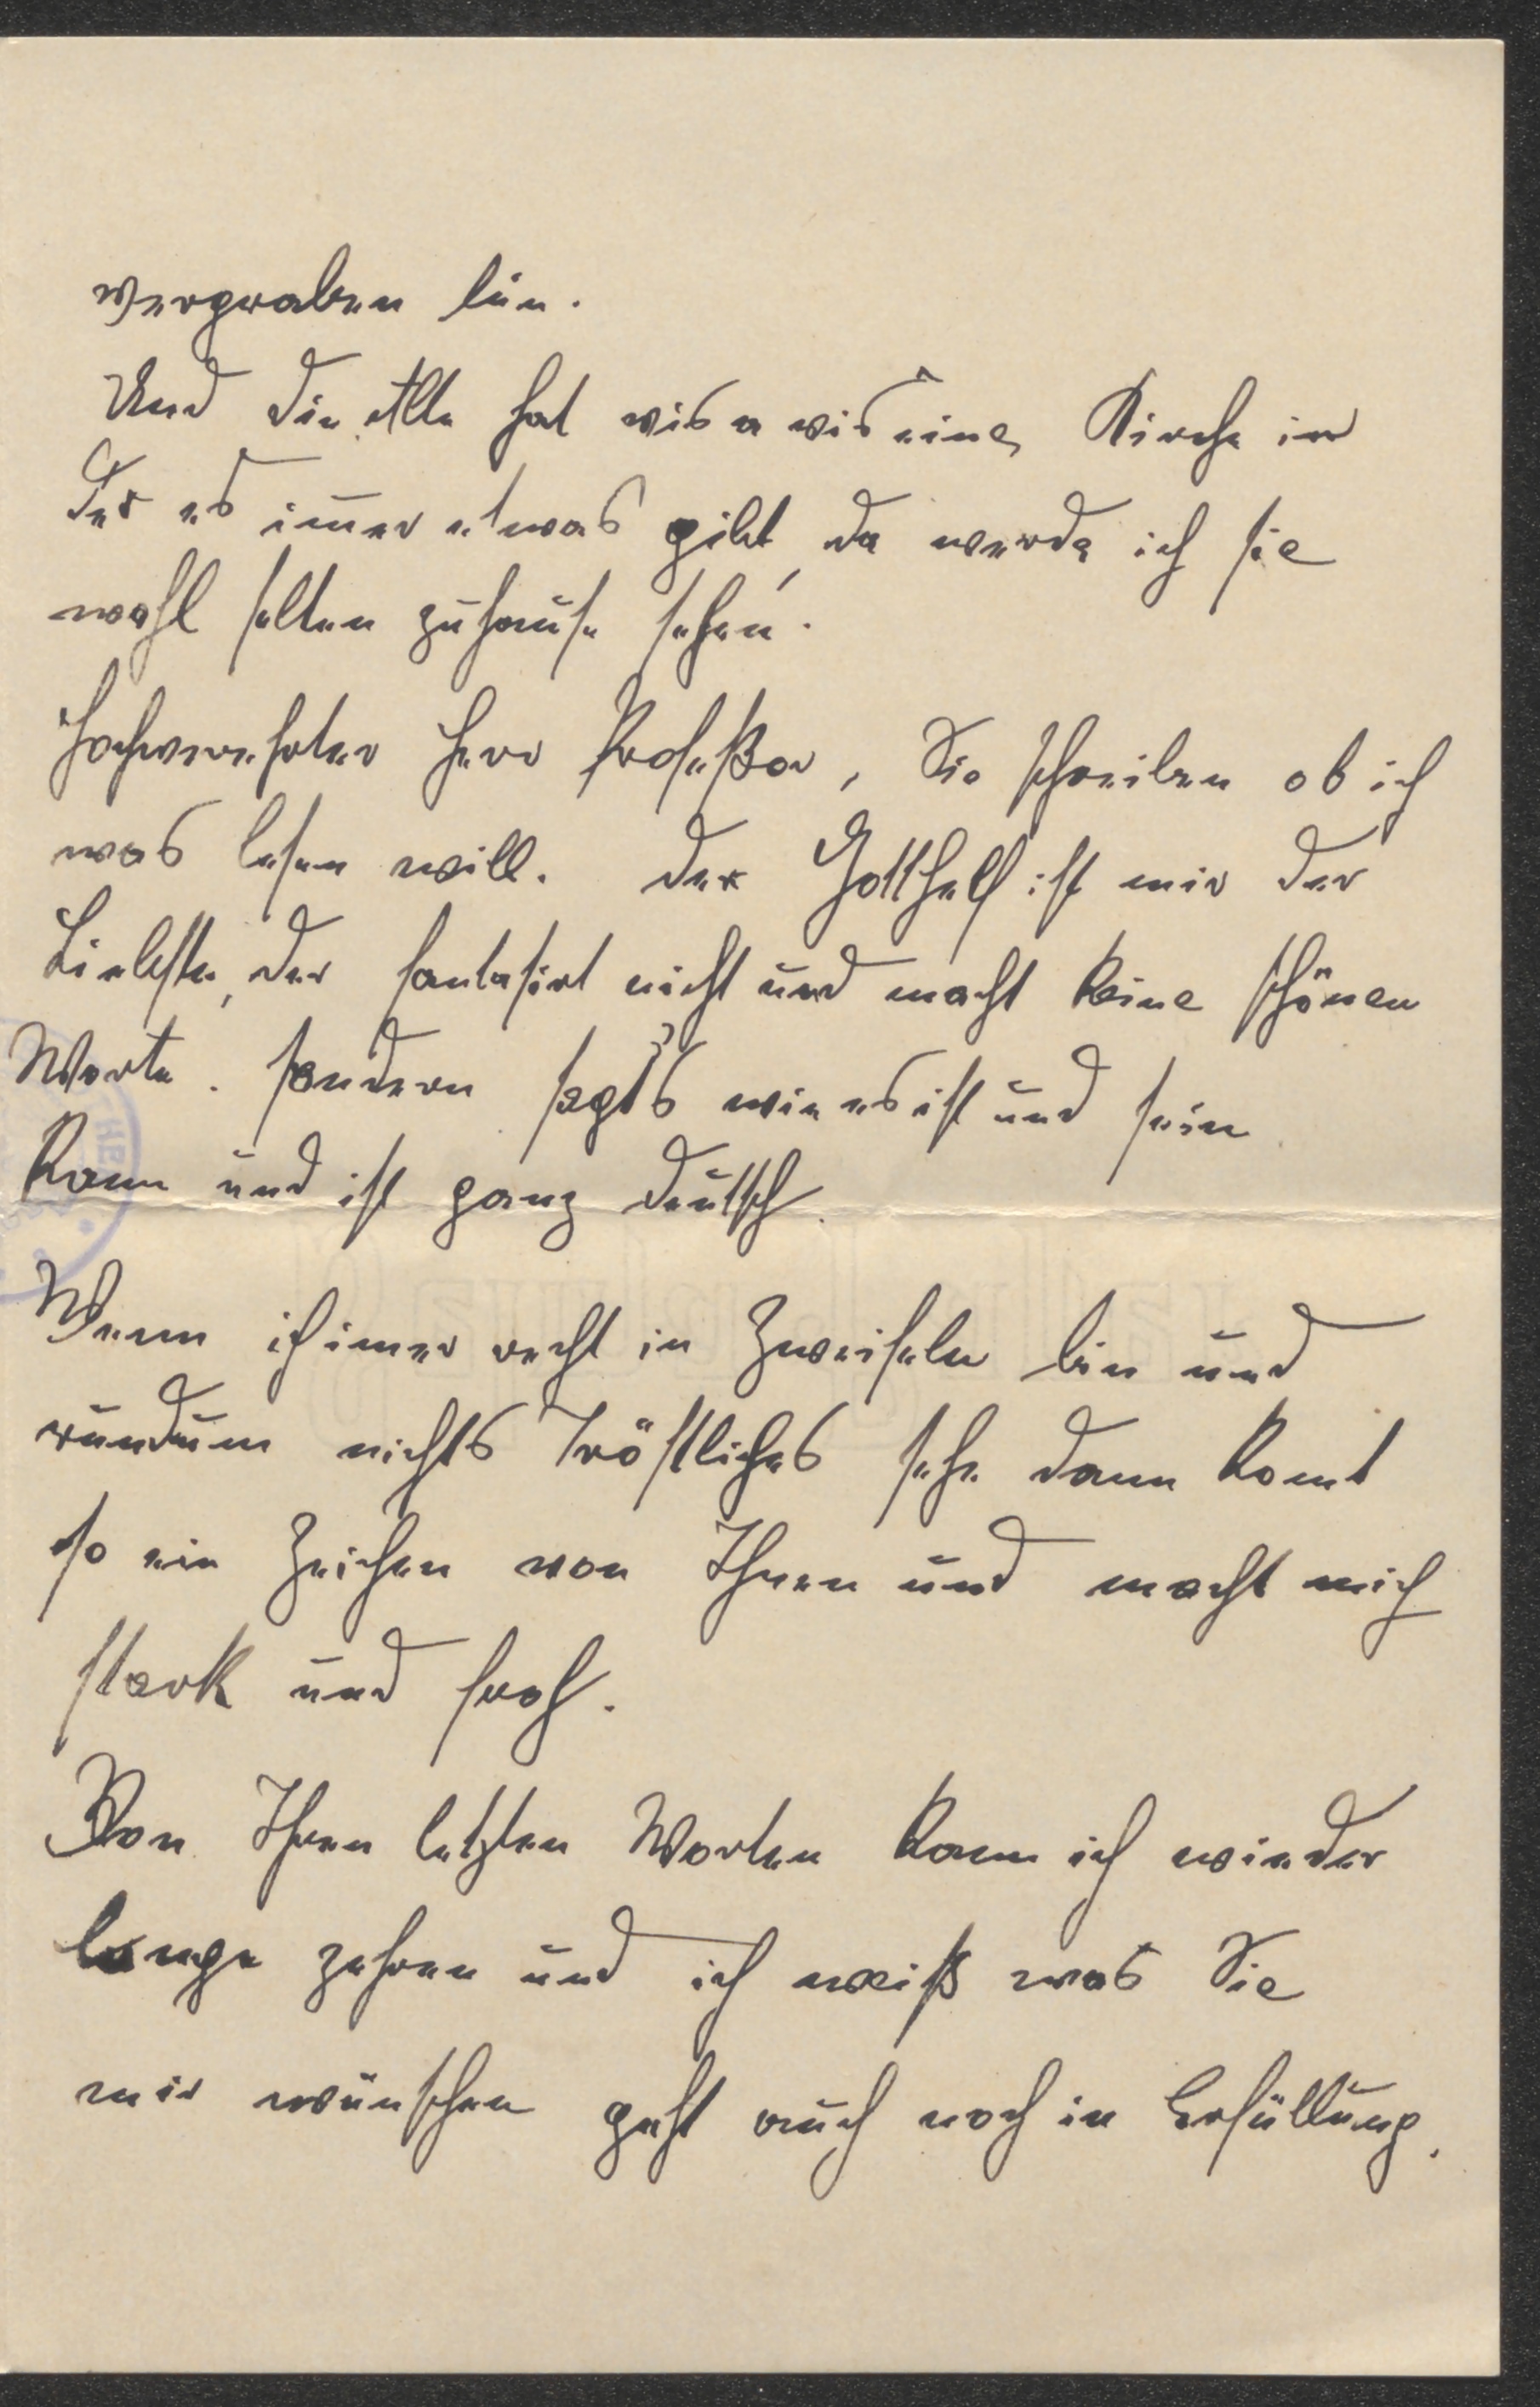 vergraben bin.
Und die Alte hat vis a vis eine Kirche in
der es im̅er etwas gibt, da werde ich sie
wohl selten zuhause sehen.
Hochverehrter Herr Profeßor, Sie schreiben ob ich
was lesen will. Der Gotthelf ist mir der
Liebste, der fantasirt nicht und macht keine schönen
Worte. sondern sagt's wie es ist und sein
kann und ist ganz deutsch.
Wenn ich imer recht in Zweifeln bin und
rundum nichts Tröstliches sehe dann komt
so ein Zeichen von Ihnen und macht mich
stark und froh.
Von Ihren letzten Worten kann ich wieder
lange zehren und ich weiß was Sie
mir wünschen geht auch noch in Erfüllung.